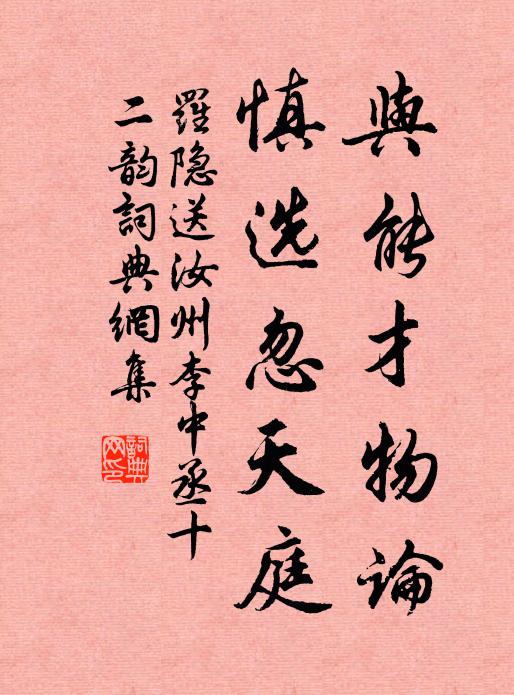 與能才物論
慎选忽天庭
羅隐送汝州李中丞十
二韵詞典網集
詞典
网印